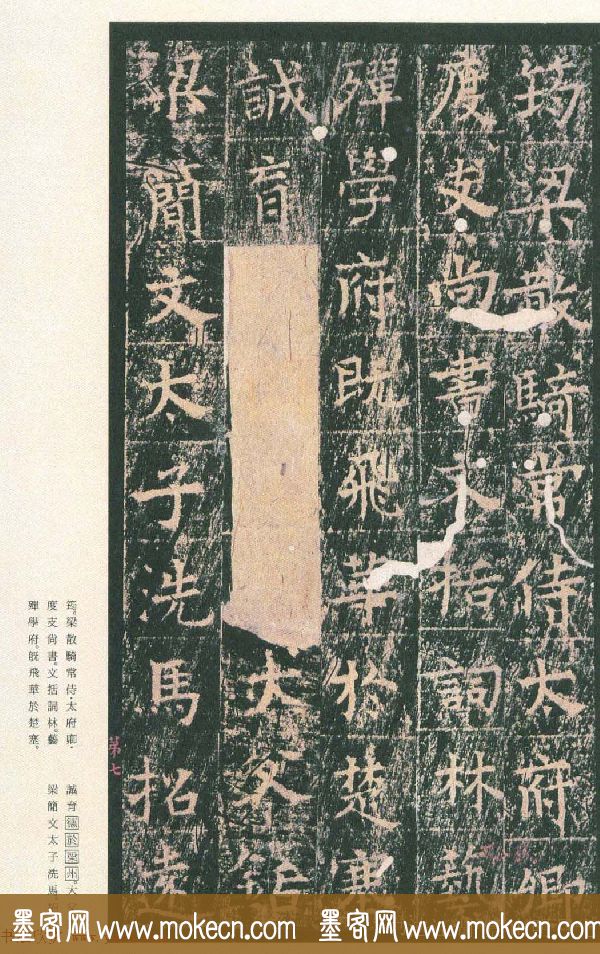 筠梁散騎常侍太府卿
度支尚書文括詞林藝
殫學府既飛華於楚塞
誠育 大父
梁簡文太子洗馬招遠
第七
筠。梁散騎常侍・太府卿・
度支尚書。文括詞林。藝
殫學府。既飛華於楚塞。
誠育於州。大
梁簡文太子洗馬
墨客网 www.mokecn.com 墨客网 www.mokecn.com